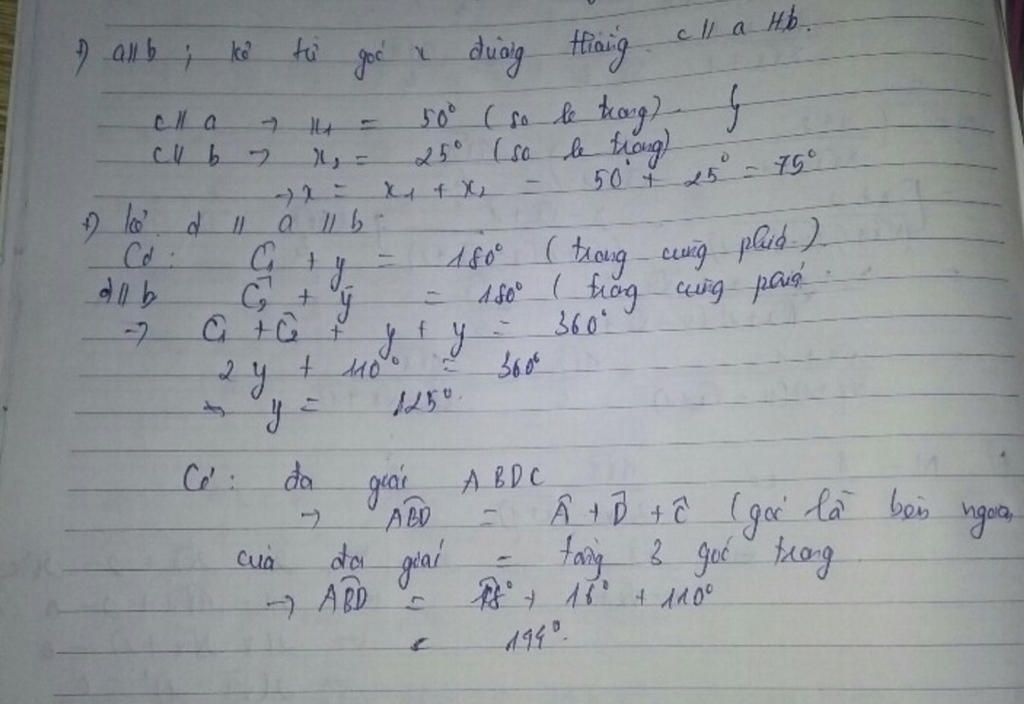 1) a//b ; kẻ từ góc x đường thẳng c // a // b.
c // a → x₁ = 50° (so le trong)
c // b → x₂ = 25° (so le trong)
→ x = x₁ + x₂ = 50 + 25° = 75°
1) kẻ d // a // b
Có: C₁ + y = 180° (trong cùng phía)
d // b C₂ + y = 180° (trong cùng phía
→ C₁ + C₂ + y + y = 360°
2y + 110° = 360°
y = 125°.
Có: đa giác ABDC
→ ABD = A + D + C (góc bên ngoài
của đa giác = tổng 3 góc trong
→ ABD = 18° + 110°
= 144°.